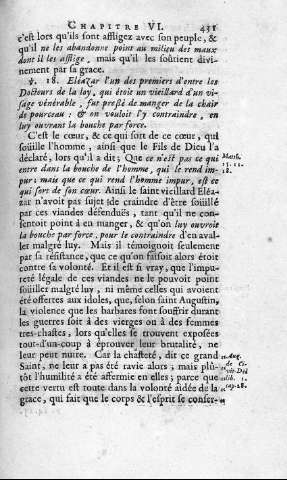 CHAPITRE VI. 431
c'est lors qu'ils sont affligez avec son peuple, &
qu'il ne les abandonne point au milieu des maux
dont il les afflige, mais qu'il les soûtient divi-
nement par sa grace.
℣. 18. Eléazar l'un des premiers d'entre les
Docteurs de la loy, qui étoit un vieillard d'un vi-
sage vénérable, fut pressé de manger de la chair
de pourceau : & on vouloit l'y contraindre, en
luy ouvrant la bouche par force.
C'est le cœur, & ce qui sort de ce cœur, qui
soüille l'homme, ainsi que le Fils de Dieu l'a
déclaré, lors qu'il a dit ; Que ce n'est pas ce qui
entre dans la bouche de l'homme, qui le rend im-
pur ; mais que ce qui rend l'homme impur, est ce
qui sort de son cœur. Ainsi le saint vieillard Eléa-
zar n'avoit pas sujet de craindre d'être soüillé
par ces viandes défenduës, tant qu'il ne con-
sentoit point à en manger, & qu'on luy ouvroit
la bouche par force, pour le contraindre d'en ava-
ler malgré luy. Mais il témoignoit seulement
par sa résistance, que ce qu'on faisoit alors étoit
contre sa volonté. Et il est si vray, que l'impu-
reté légale de ces viandes ne le pouvoit point
soüiller malgré luy, ni même celles qui avoient
été offertes aux idoles, que, selon saint Augustin,
la violence que les barbares font souffrir durant
les guerres soit à des vierges ou à des femmes
tres-chastes, lors qu'elles se trouvent exposées
tout-d'un-coup à éprouver leur brutalité, ne
leur peut nuire. Car la chasteté, dit ce grand
Saint, ne leur a pas été ravie alors ; mais plû-
tôt l'humilité a été affermie en elles ; parce que
cette vertu est toute dans la volonté aidée de la
grace, qui fait que le corps & l'esprit se conser-
Matth.
15. 11.
18.
Aug.
de Ci-
vit. Dei
lib. 1.
cap. 28.